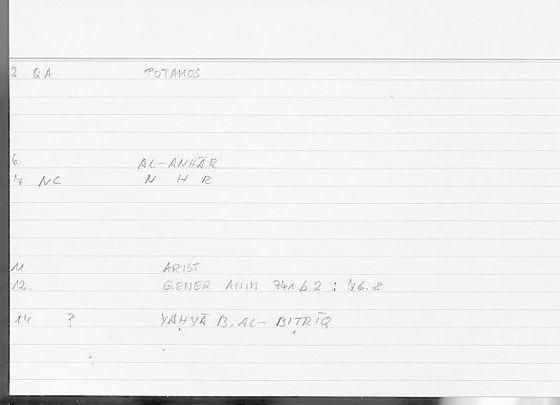 2 QA POTAMOS
6 AL-ANHĀR
7 NC N H R
11 ARIST
12 GENER ANIM 741 b 2 : 76.8
14 ? YAḤYĀ B. AL-BIṬRĪQ